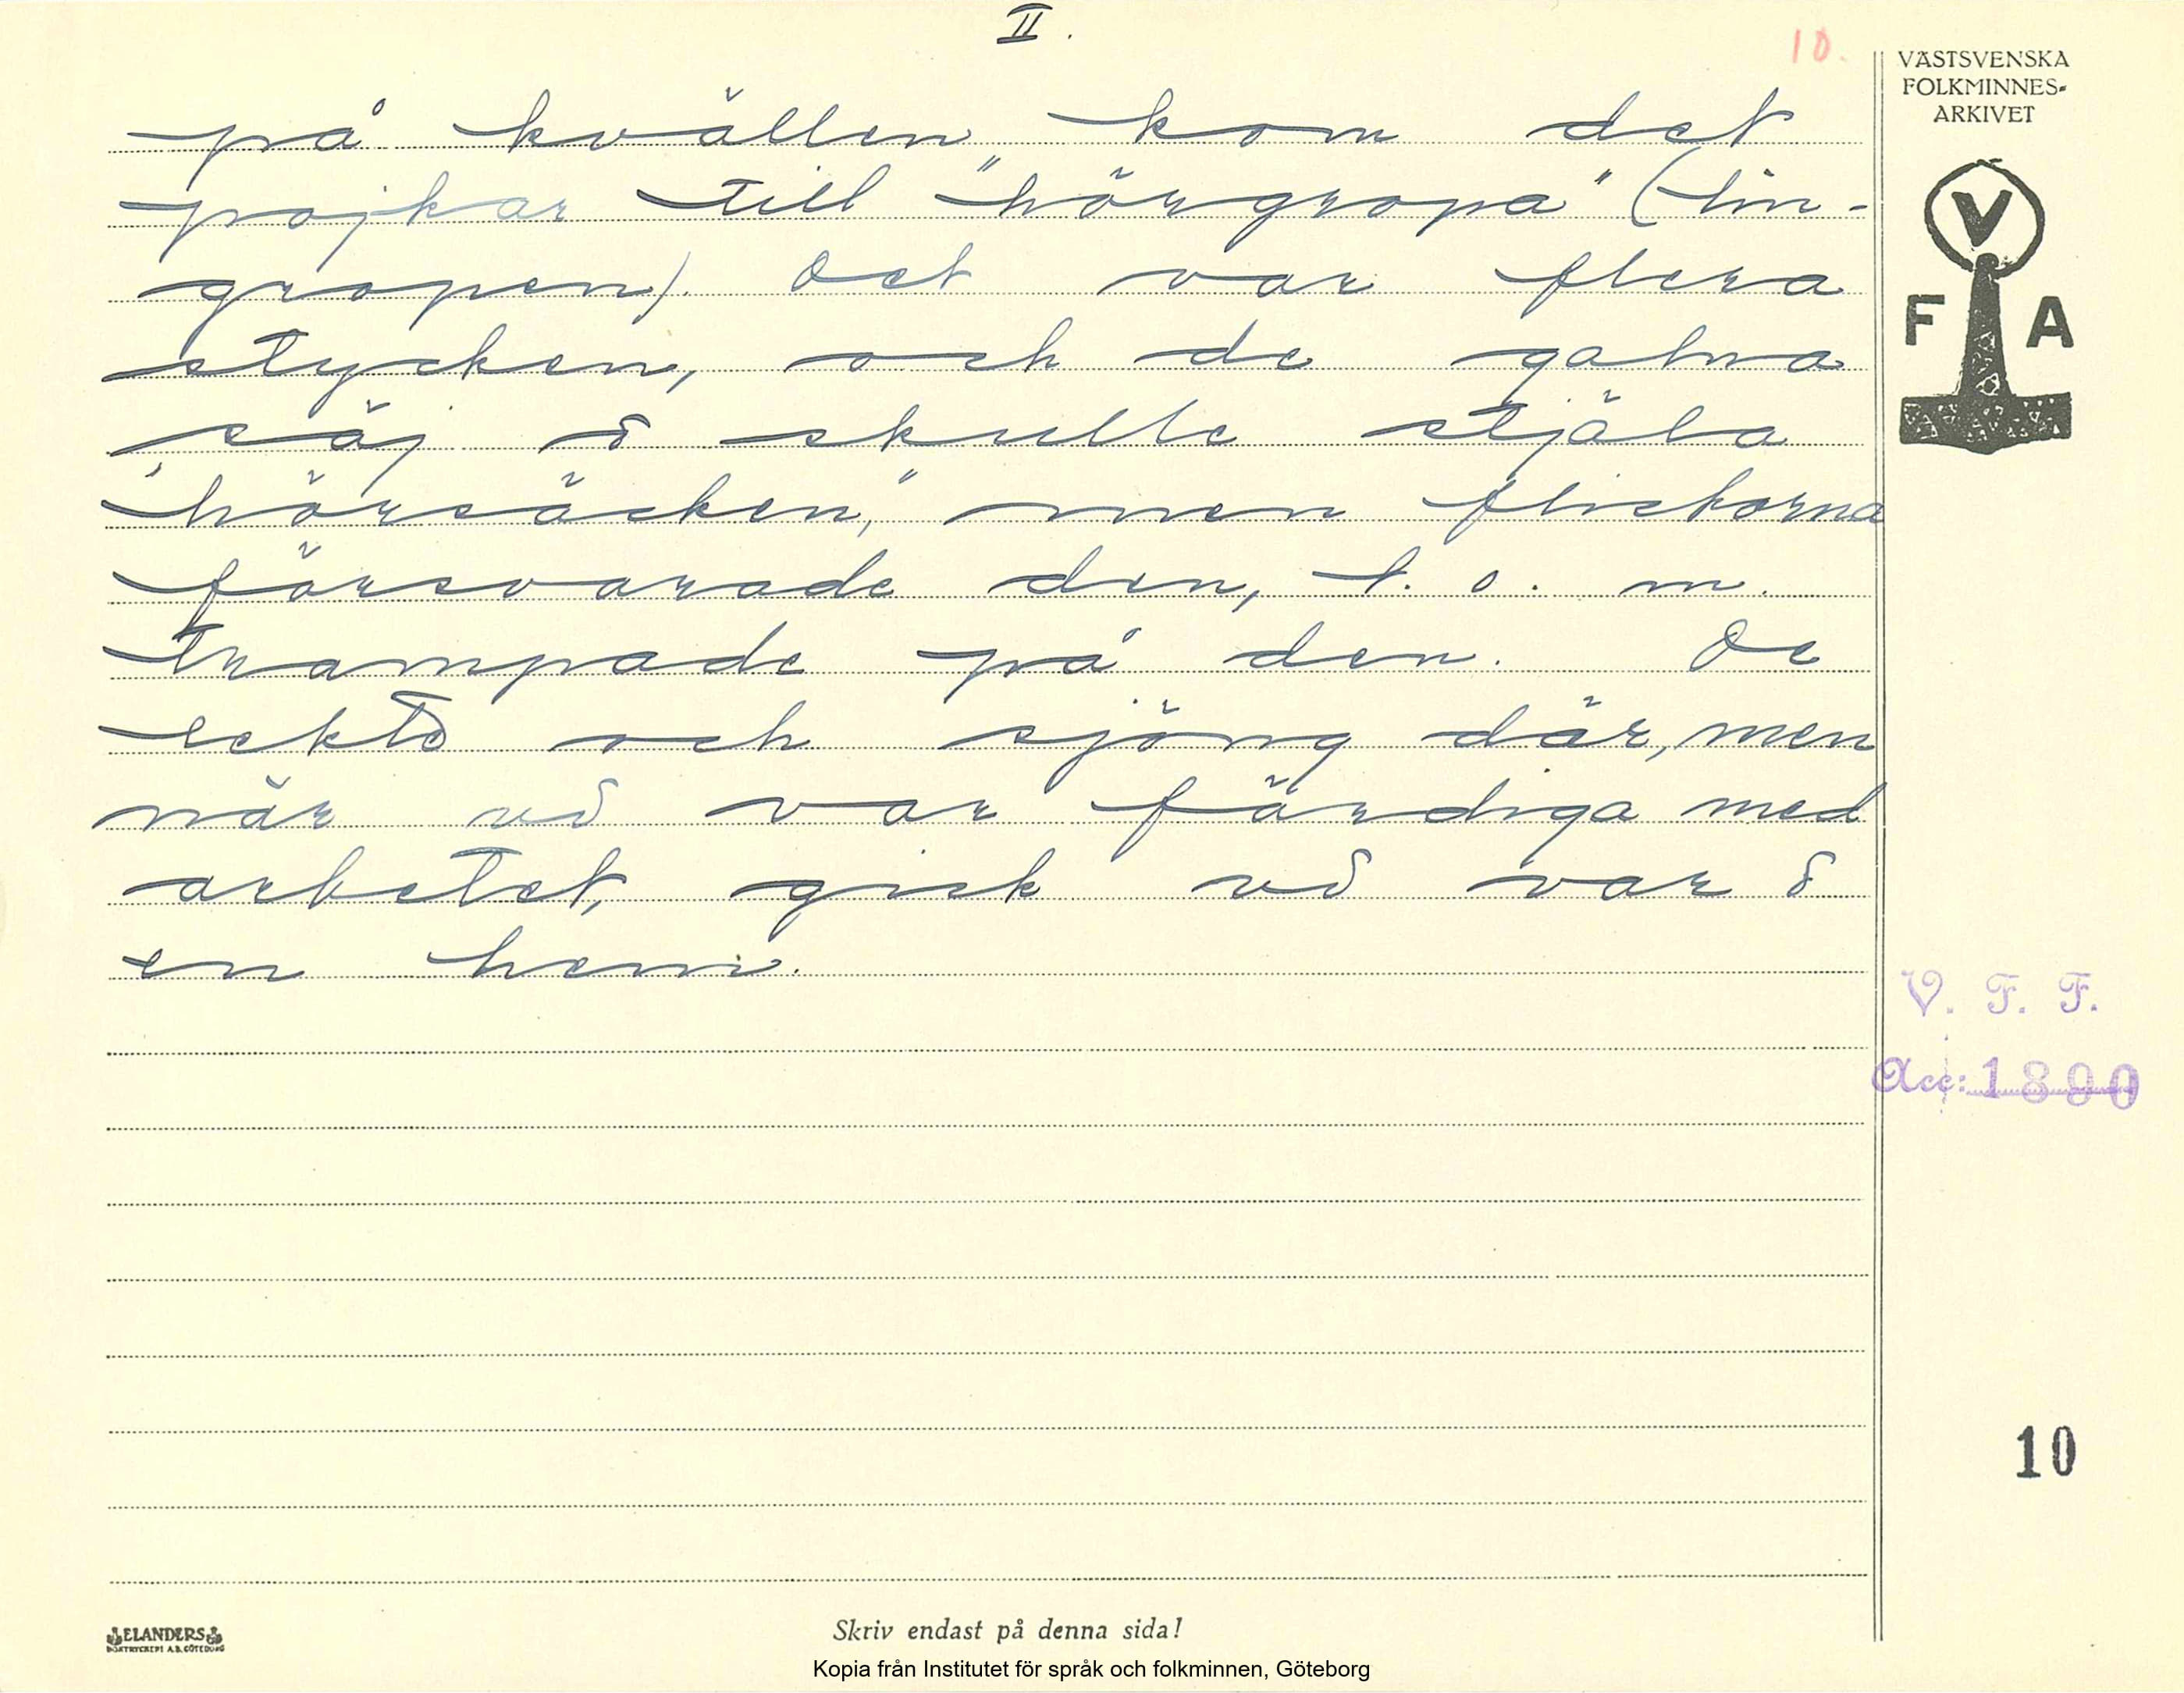 II.
10.
på kvällen kom det
pojkar till "hörgropa" (lin-
gropen). Det var flera
stycken, och de galna
säj δ skulle stjäla
"hörsäcken," men flickorna
försvarade den, t. o. m.
trampade på den. De
lektδ och sjöng där, men
när vδ var färdiga med
arbetet, gick vδ var δ
en hem.
VÄSTSVENSKA
FOLKMINNES-
ARKIVET
V
F A
V. F. F.
Acc: 1890
10
ELANDERS
BOKTRYCKERI A.B. GÖTEBORG
Skriv endast på denna sida!
Kopia från Institutet för språk och folkminnen, Göteborg